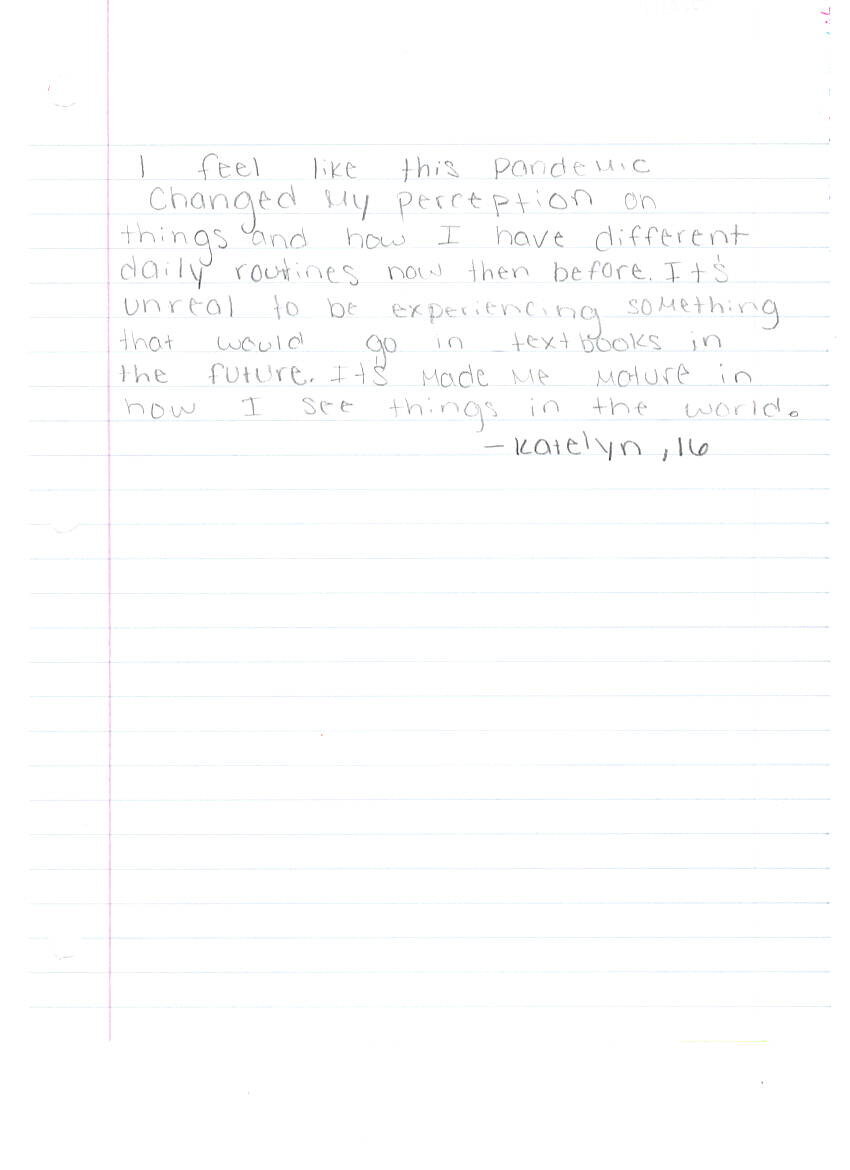 I feel like this pandemic
Changed My perception on
things and how I have different
daily routines now then before. It's
unreal to be experiencing something
that would go in textbooks in
the future. It's Made Me Mature in
how I see things in the world.
- Katelyn, 16